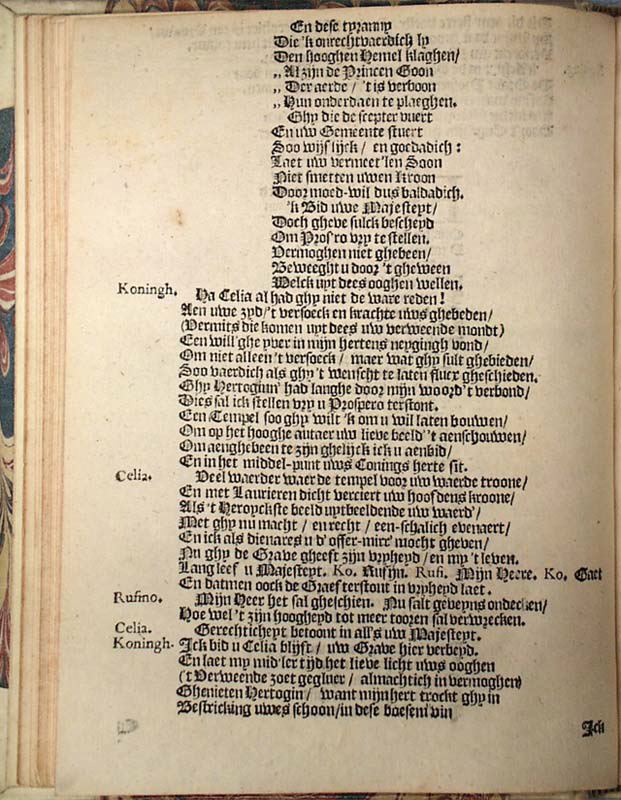 En dese tyranny
Die 'k onrechtvaerdich ly
Den hooghen Hemel klaghen/
„ Al zijn de Princen Goon
„ Der aerde / 't is verboon
„ Hun onderdaen te plaeghen.
Ghy die de scepter vuert
En uw Gemeente stuert
Soo wijslijck / en goedadich:
Laet uw vermeet'len Soon
Niet smetten uwen kroon
Door moed-wil dus baldadich.
'k Bid uwe Majesteyt/
Doch gheve sulck bescheyd
Om Pros'ro vry te stellen.
Vermoghen niet ghebeen/
Beweeght u door 't gheween
Welck uyt dees ooghen wellen.
Koningh. Ha Celia al had ghy niet de ware reden!
Aen uwe zyd/'t versoeck en krachte uws ghebeden/
(Vermits die komen uyt dees uw verweende mondt)
Een will'ghe yver in mijn hertens neygingh vond/
Om niet alleen 't versoeck / maer wat ghy sult ghebieden/
Soo vaerdich als ghy 't wenscht te laten flucx gheschieden.
Ghy Hertoginn' had langhe door mijn woord 't verbond/
Dies sal ick stellen vry u Prospero terstont.
Een Tempel soo ghy wilt 'k om u wil laten bouwen/
Om op het hooghe autaer uw lieve beeld' 't aenschouwen/
Om aenghebeen te zijn ghelijck ick u aenbid/
En in het middel-punt uws Conings herte sit.
Celia. Veel waerder waer de tempel voor uw waerde troone/
En met Laurieren dicht verciert uw hoofdens kroone/
Als 't Heroyckste beeld uytbeeldende uw waerd'/
Met ghy nu macht / en recht / een-schalich evenaert/
En ick als dienares u d'offer-mirr' mocht gheven/
Nu ghy de Grave gheeft zijn vryheyd / en my 't leven.
Langleef u Majesteyt. Ko. Rufijn. Rufi. Mijn Heere. Ko. Gaet
En datmen oock de Graef terstont in vryheyd laet.
Rufino. Mijn Heer het sal gheschien. Nu salt geveyns ondecken/
Hoe wel 't zijn hoogheyd tot meer tooren sal verwrecken.
Celia. Gerechticheyt betoont in all's uw Majesteyt.
Koningh. Ick bid u Celia blijft / uw Grave hier verbeyd.
En laet my mid'ler tijd het lieve licht uws ooghen
('t Verweende zoet gegluer / almachtich in vermoghen)
Ghenieten Hertogin / want mijn hert trockt ghy in
Bestricking uwes schoon/in dese boesem vin
Ick